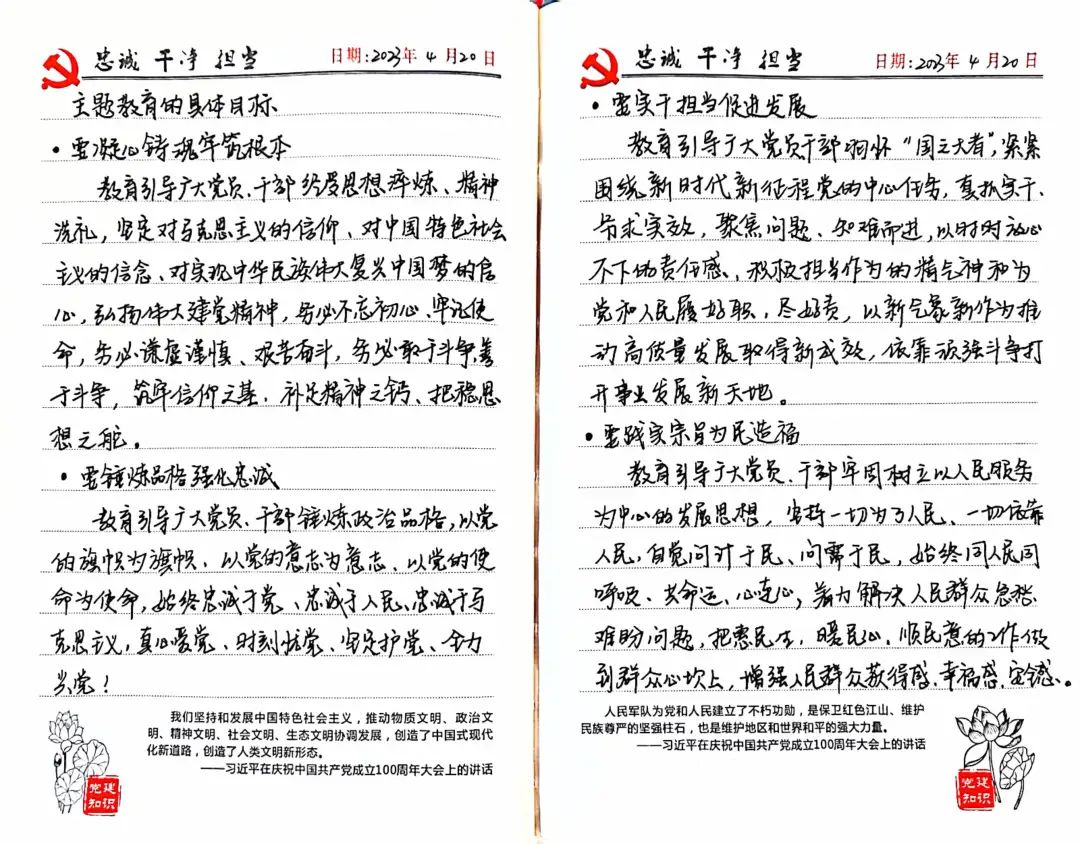 忠诚 干净 担当 日期:2023年 4 月20日
主题教育的具体目标
• 要凝心铸魂牢筑根本
教育引导广大党员、干部经受思想淬炼、精神
洗礼，坚定对马克思主义的信仰、对中国特色社会
主义的信念、对实现中华民族伟大复兴中国梦的信
心，弘扬伟大建党精神，务必不忘初心、牢记使
命，务必谦虚谨慎、艰苦奋斗，务必敢于斗争善
于斗争，筑牢信仰之基、补足精神之钙、把稳思
想之舵。
• 要锤炼品格强化忠诚
教育引导广大党员、干部锤炼政治品格，以党
的旗帜为旗帜、以党的意志为意志、以党的使
命为使命，始终忠诚于党、忠诚于人民、忠诚于马
克思主义，真心爱党、时刻忧党、坚定护党、全力
兴党！
我们坚持和发展中国特色社会主义，推动物质文明、政治文
明、精神文明、社会文明、生态文明协调发展，创造了中国式现代
化新道路，创造了人类文明新形态。
——习近平在庆祝中国共产党成立100周年大会上的讲话
党建
知识
忠诚 干净 担当 日期:2023年 4 月20日
• 要实干担当促进发展
教育引导广大党员干部胸怀“国之大者”，紧紧
围绕新时代新征程党的中心任务，真抓实干、
务求实效，聚焦问题、知难而进，以时时放心
不下的责任感、积极担当作为的精气神和为
党和人民履好职、尽好责，以新气象新作为推
动高质量发展取得新成效，依靠顽强斗争打
开事业发展新天地。
• 要践实宗旨为民造福
教育引导广大党员、干部牢固树立以人民服务
为中心的发展思想，坚持一切为了人民、一切依靠
人民，自觉问计于民、问需于民，始终同人民同
呼吸、共命运、心连心，着力解决人民群众急愁
难盼问题，把惠民生、暖民心、顺民意的工作做
到群众心坎上，增强人民群众获得感、幸福感、安全感。
人民军队为党和人民建立了不朽功勋，是保卫红色江山、维护
民族尊严的坚强柱石，也是维护地区和世界和平的强大力量。
——习近平在庆祝中国共产党成立100周年大会上的讲话
党建
知识